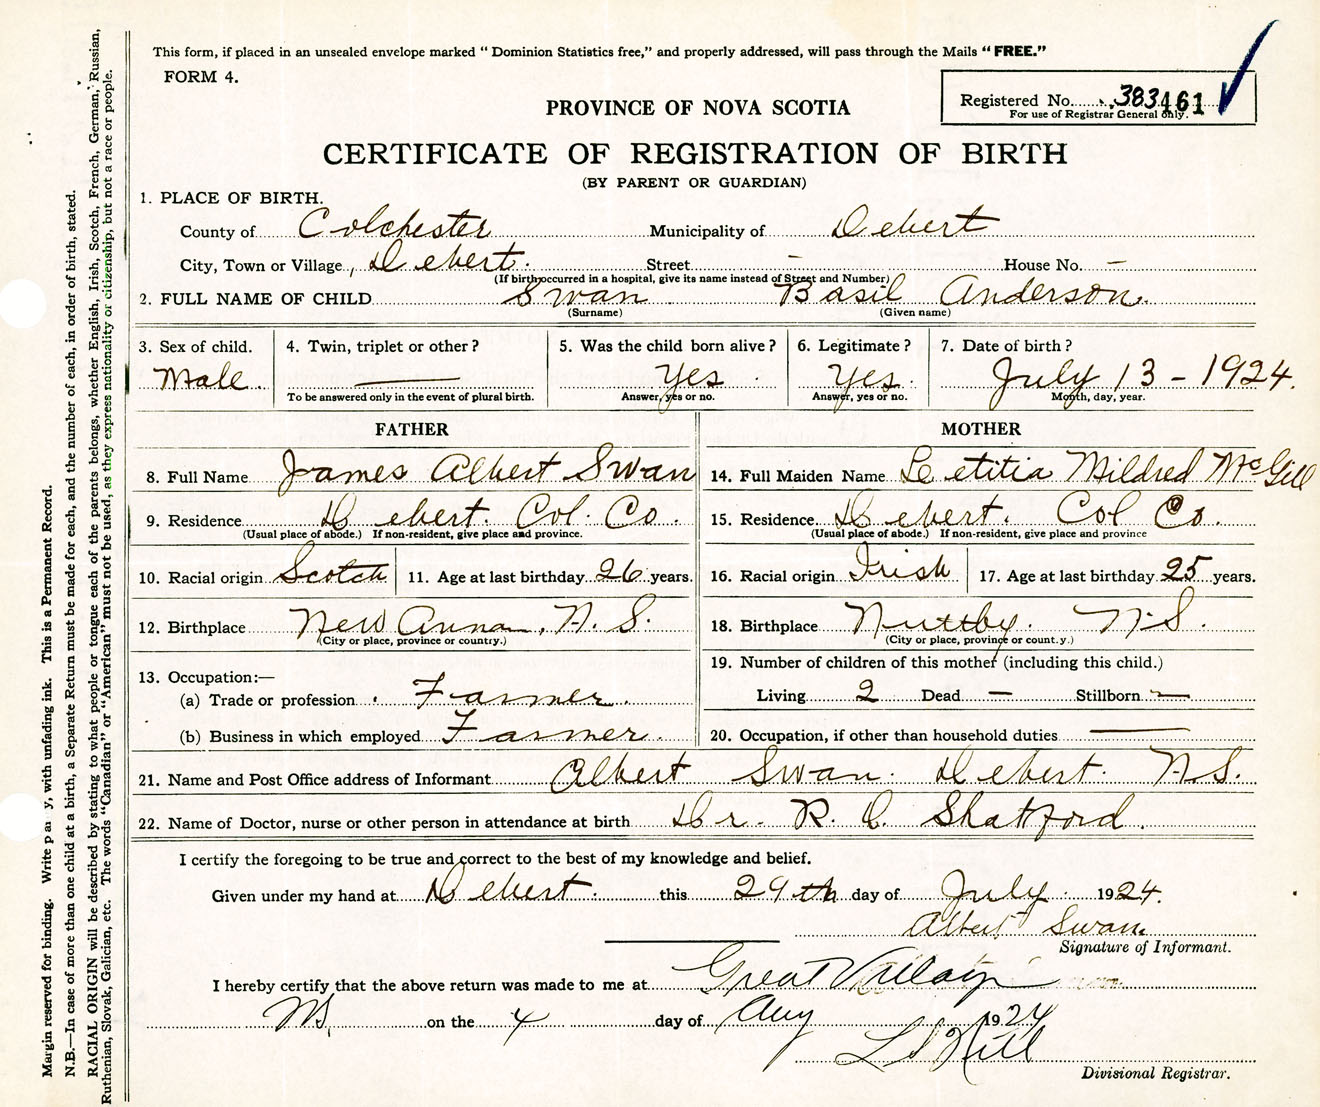 This form, if placed in an unsealed envelope marked “ Dominion Statistics free,” and properly addressed, will pass through the Mails “ FREE.”
FORM 4.
Registered No. 383461
For use of Registrar General only.
PROVINCE OF NOVA SCOTIA
CERTIFICATE OF REGISTRATION OF BIRTH
(BY PARENT OR GUARDIAN)
1. PLACE OF BIRTH.
County of Colchester Municipality of Debert
City, Town or Village, Debert. Street - House No. -
(If birth occurred in a hospital, give its name instead of Street and Number)
2. FULL NAME OF CHILD Swan Basil Anderson
(Surname) (Given name)
3. Sex of child. 4. Twin, triplet or other? 5. Was the child born alive? 6. Legitimate? 7. Date of birth?
Male. — Yes Yes. July 13 - 1924.
To be answered only in the event of plural birth. Answer, yes or no. Answer, yes or no. Month, day, year.
FATHER MOTHER
8. Full Name James Albert Swan 14. Full Maiden Name Letitia Mildred McGill
9. Residence Debert. Col. Co. 15. Residence Debert. Col Co.
(Usual place of abode.) If non-resident, give place and province. (Usual place of abode.) If non-resident, give place and province
10. Racial origin Scotch 11. Age at last birthday 26 years. 16. Racial origin Irish 17. Age at last birthday 25 years.
12. Birthplace New Anna, N. S. 18. Birthplace Nuttby. N.S.
(City or place, province or country.) (City or place, province or count.y.)
13. Occupation:— 19. Number of children of this mother (including this child.)
(a) Trade or profession Farmer. Living 2 Dead — Stillborn —
(b) Business in which employed Farmer. 20. Occupation, if other than household duties —
21. Name and Post Office address of Informant Albert Swan. Debert. N.S.
22. Name of Doctor, nurse or other person in attendance at birth Dr. R. C. Shatford.
I certify the foregoing to be true and correct to the best of my knowledge and belief.
Given under my hand at Debert. this 29th day of July 1924.
Albert Swan.
Signature of Informant.
I hereby certify that the above return was made to me at Great Village
NS, on the 4 day of Aug 1924
Hill
Divisional Registrar.
Margin reserved for binding. Write p y, with unfading ink. This is a Permanent Record.
N.B.—In case of more than one child at a birth, a Separate Return must be made for each, and the number of each, in order of birth, stated.
RACIAL ORIGIN will be described by stating to what people or tongue each of the parents belongs, whether English, Irish, Scotch, French, German, Russian,
Ruthenian, Slovak, Galician, etc. The words “Canadian” or “American” must not be used, as they express nationality or citizenship, but not a race or people.